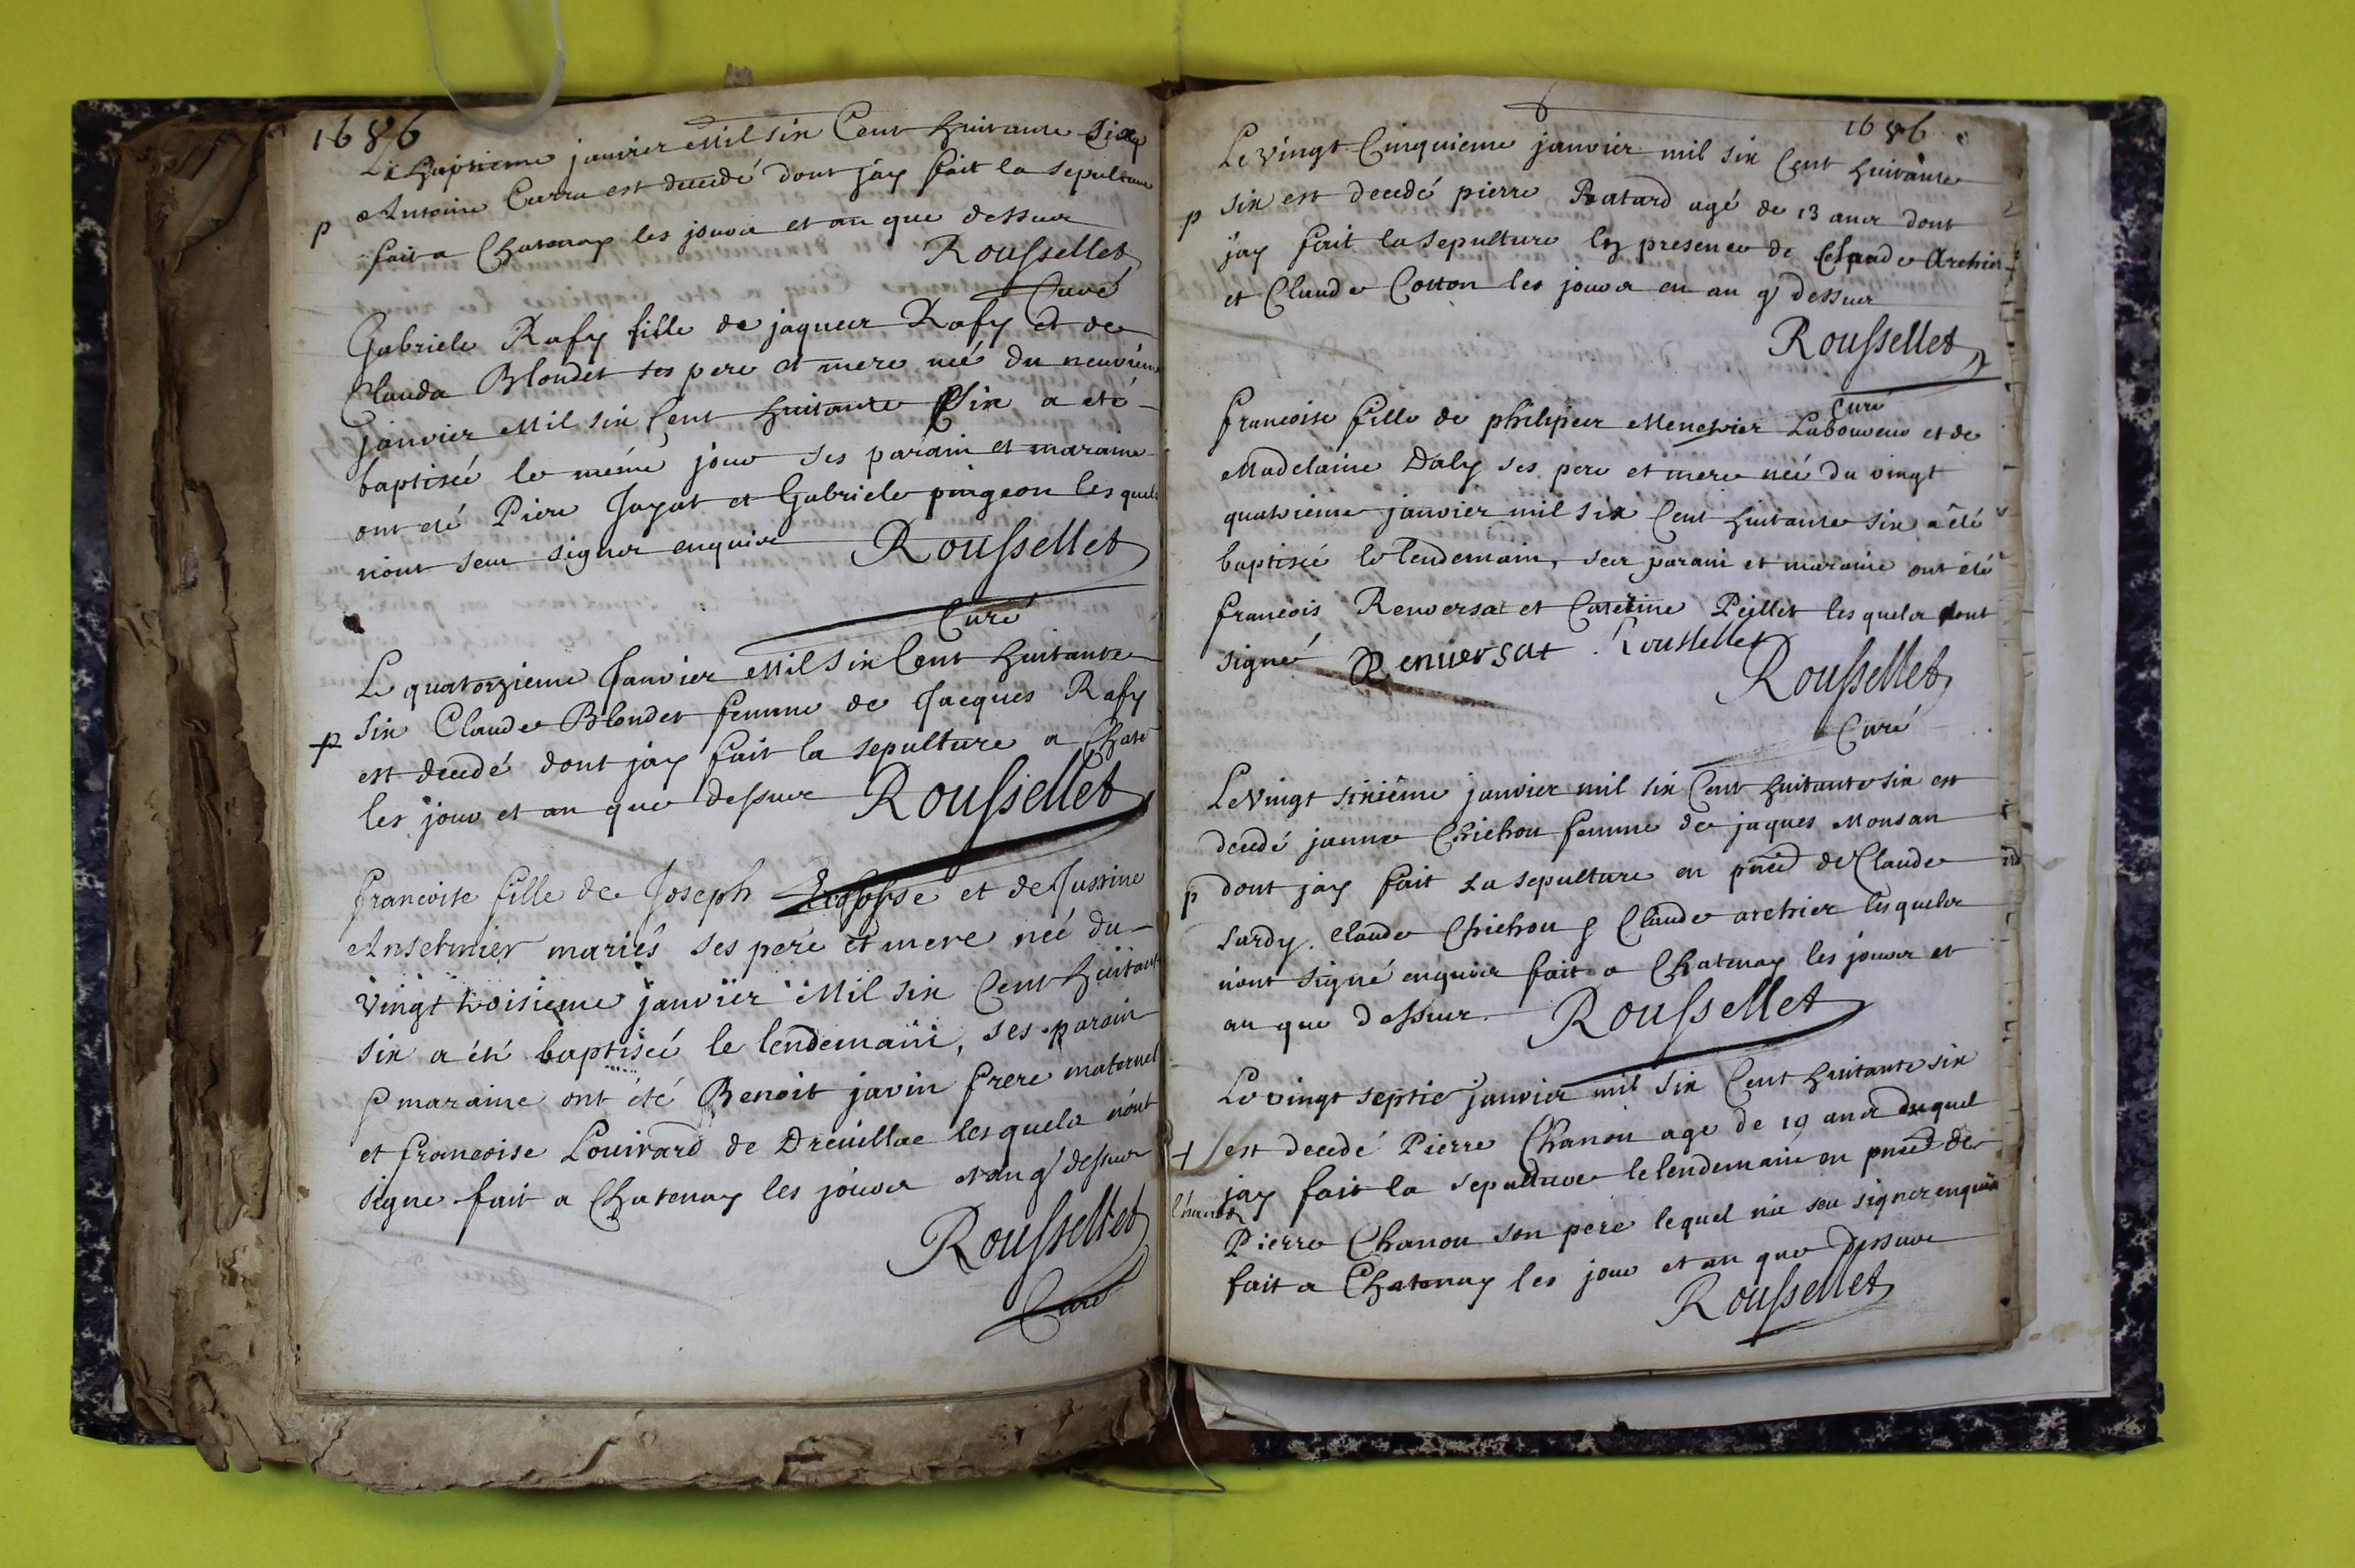 1686
Le septieme janvier Mil six Cent huitante six
p Antoine Carra est decedé dont jay fait la sepulture
fait a Chatenay les jour et an que dessus
Roussellet
Curé
Gabriele Rafy fille de jaques Rafy et de
Clauda Blondet ses pere et mere neé du neuvieme
janvier Mil six Cent huitante six a eté
baptiseé le méme jour ses parain et maraine
ont eté Piere Jayat et Gabriele pingeon les quels
nont seu signer enquis Roussellet
Curé
Le quatorzieme Janvier Mil six Cent huitante
p six Claude Blondet femme de Jacques Rafy
est decedé dont jay fait la sepulture a Chate
les jour et an que dessus Roussellet
francoise fille de Joseph et de Justine
Anselmier mariés ses pere et mere neé du
vingt troisieme janvier Mil six Cent huitante
six a été baptiseé le lendemain, ses parain
& maraine ont été Benoit javin frere maternel
et francoise Louivard de Dreuillac lesquels n'ont
signe fait a Chatenay les jour et an q' dessus
Roussellet
Curé
1686
Le vingt Cinquieme janvier mil six Cent huitante
p six est decedé pierre Batard agé de 13 ans dont
jay fait la sepulture en presence de Claude Archier
et Claude Cotton les jour en an q' dessus
Roussellet
Curé
francoise fille de philiper Menetrier Laboureur et de
Madelaine Daly ses pere et mere neé du vingt
quatrieme janvier mil six Cent huitante six a été
baptiseé le lendemain, ses parain et maraine ont été
francois Renversat et Caterine Peillet les quels dont
signé Renversat Roussellet
Roussellet
Curé
Le vingt sixiéme janvier mil six Cent huitante six est
decedé janne Chichou femme de jaques Monsan
p dont jay fait la sepulture en pnce de Claude
Sardy. Claude Chichou & Claude archier lesquels
n'ont signé enquis fait a Chatenay les jour et
an que dessus. Roussellet
Le vingt septie janvier mil six Cent huitante six
+ est decedé Pierre Chanon age de 19 ans duquel
jay fait la sepulture le lendemain en pnce de
Pierre Chanon son pere lequel n'a seu signer enquis
fait a Chatenay les jour et an que dessus
Roussellet